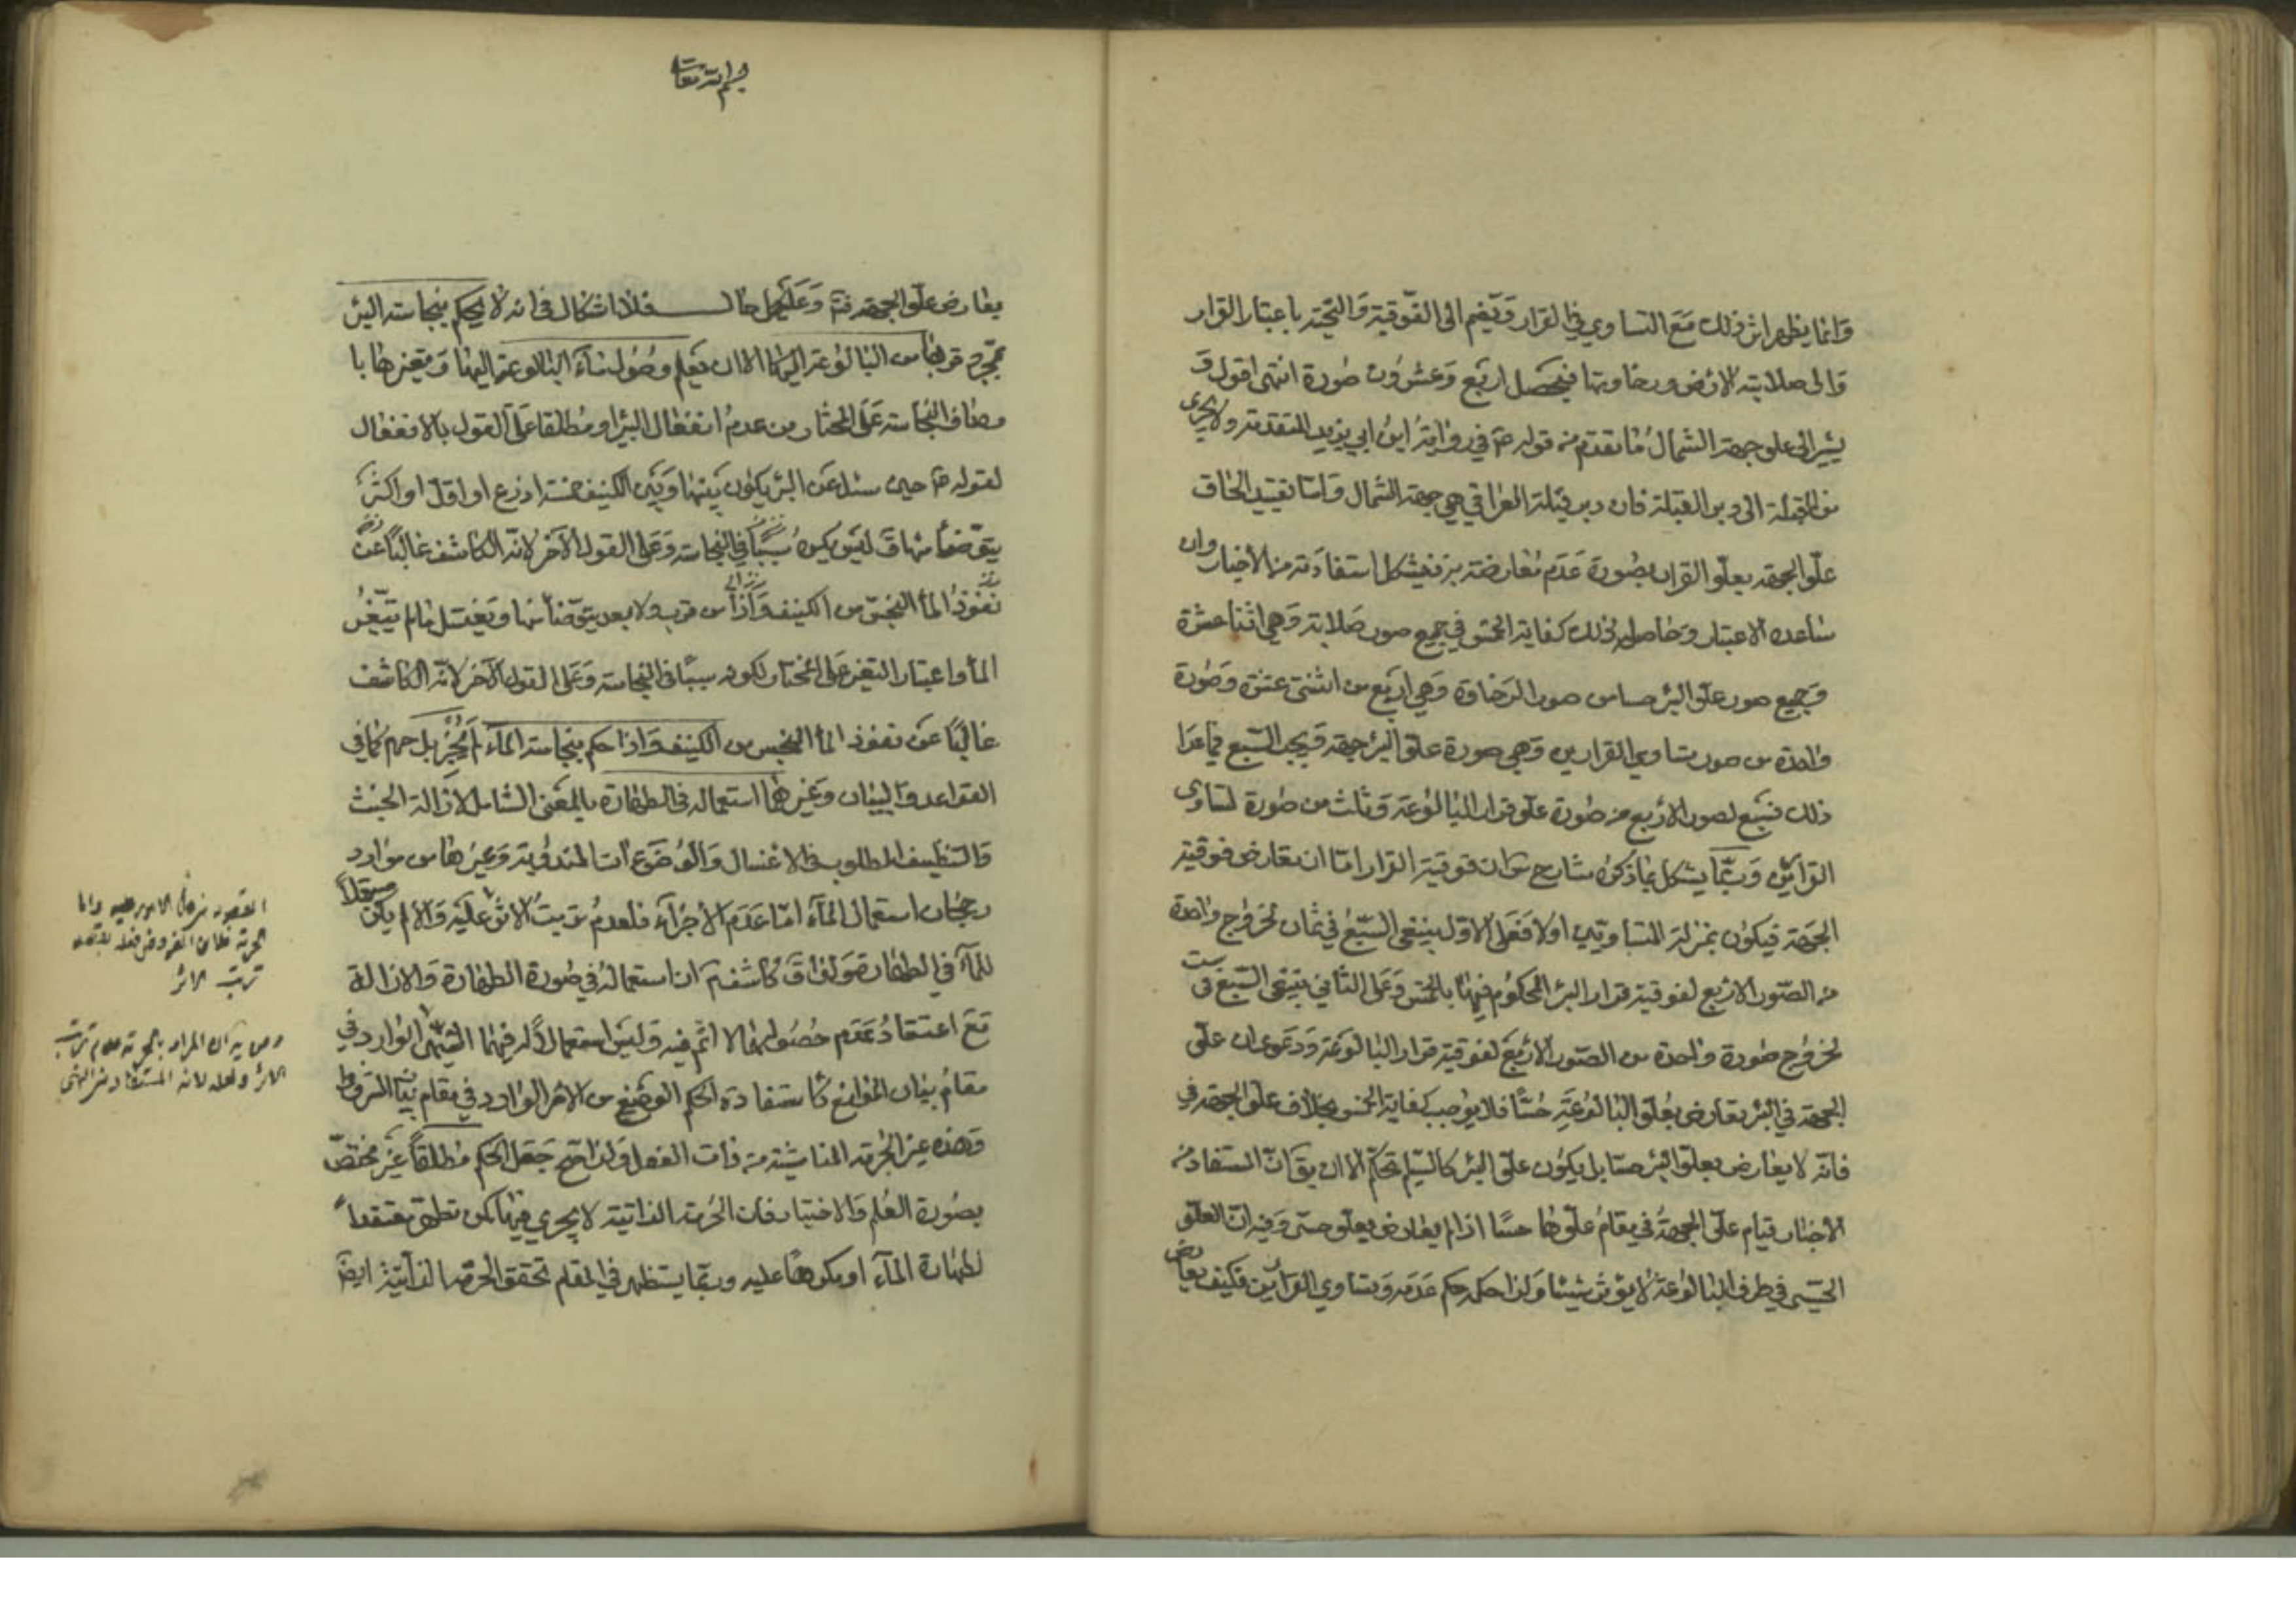 وانما يظهر اثر ذلك مع التساوي في القرار ويضم الى الفوقية والتحتية باعتبار القرار
والى صلابة الارض ورخاوتها فيحصل اربع وعشرون صورة انتهى اقول و
يشير الى علو جهة الشمال ما تقدم من قوله ع في رواية ابن ابي يزيد المتقدمة ولا يجرى
من القبلة الى دبر القبلة فان دبر قبلة العراقي هي جهة الشمال واما تقييد الحاق
علو الجهة بعلو القرار بصورة عدم معارضته به فيشكل استفادته من الاخبار وان
ساعده الاعتبار وحاصل ذلك كفاية الخمس في جميع صور صلابة وهي اثنا عشرة
وجميع صور علو البئر حسا من صور الرخاوة وهي اربع من اثنتى عشرة وصورة
واحدة من صور تساوي القرارين وهي صورة علو البئر جهة ويجب السبع فيما عدا
ذلك فتبع لصور الاربع من صورة علو قرار البالوعة وثلث من صورة تساوى
القرارين وربما يشكل بما ذكره شارح من ان فوقية القرار اما ان تعارض فوقية
الجهة فيكون بمنزلة المتساويين اولا فعلى الاول ينبغي السبع في ثمان لخروج واحدة
من الصور الاربع لفوقية قرار البئر المحكوم فيها بالخمس وعلى الثاني ينبغي السبع في ست
لخروج صورة واحدة من الصور الاربع لفوقية قرار البالوعة ودعوى ان علو
الجهة في البئر يعارض بعلو البالوعة حسا فلا يوجب كفاية الخمس بخلاف علو الجهة في
فانه لا يعارض بعلو البئر حسا بل يكون علو البئر كالسليم تحكم الا ان يق ان المستفاد من
الاخبار قيام علو الجهة في مقام علوها حسا اذا لم يعارض بعلو حسى وفيه ان العلو
الحسى في طرف البالوعة لا يؤثر شيئا ولذا حكمه حكم عدمه وتساوي القرارين فكيف يعارض
بسم الله تعالى
يعارض علو الجهة فتم وعلى كل حال فلا اشكال في انه لا يحكم بنجاسة البئر
بمجرد قربها من البالوعة اليها الا ان يعلم وصول ماء البالوعة اليها وتغيرها با
وصاف النجاسة على المختار من عدم انفعال البئر او مطلقا على القول بالانفعال
لقوله ع حين سئل عن البئر يكون بينها وبين الكنيف خمسة اذرع او اقل او اكثر
يتوضأ منها ق ليس يكره سببا في النجاسة وعلى القول الآخر لانه الكاشف غالبا عن
نفوذ الماء النجس من الكنيف من قرب ولا بعد يتوضأ منها ويغتسل ما لم يتغير
الماء واعتبار التغير على المختار لكونه سببا في النجاسة وعلى القول الآخر لانه الكاشف
غالبا عن نفوذ الماء النجس من الكنيف واذا حكم بنجاسة الماء لم يجز بل حرم كما في
القواعد والبيان وغيرهما استعماله في الطهارة بالمعنى الشامل لازالة الخبث
والتنظيف المطلوب في الاغسال والوضوءات المندوبة وغيرها من موارد
رجحان استعمال الماء اما عدم الأجزاء فلعدم ترتب الاثر عليه والا لم يكن مستعملا
للماء في الطهارة كاشف ان استعماله في صورة الطهارة والازالة
مع اعتقاد عدم حصولهما لا اثم فيه وليس استعمالا له فيهما النهى الوارد في
مقام بيان الموانع كاستفادة الحكم الوضعي من الامر الوارد في مقام بيان الشروط
وهذه غير الحرمة الناشئة من ذات الفعل ولذا صح جعل الحكم مطلقا غير مختص
بصورة العلم والاختيار فان الحرمة الذاتية لا يجري فيها كمن تطهر معتقدا
لطهارة الماء او مكرها عليه وربما يستظهر في المقام تحقق الحرمة الذاتية ايض
ترتب الاثر
الاثر ولعله لانه المستفاد من النهى